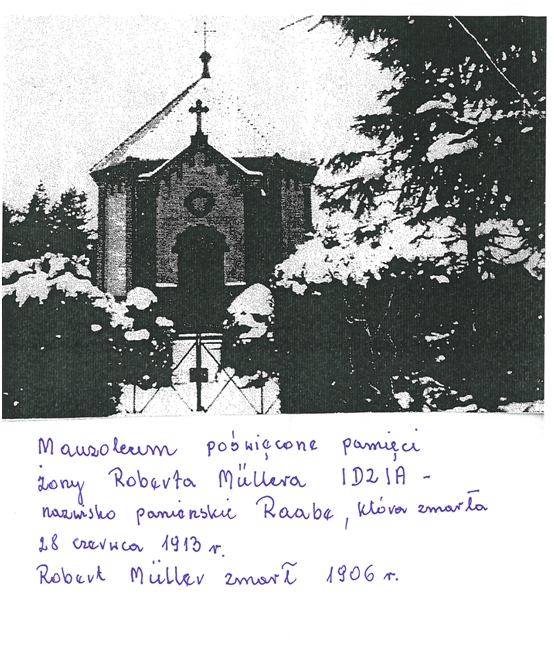 Mauzoleum poświęcone pamięci
żony Roberta Müllera IDZIA -
nazwisko panieńskie Raabe, która zmarła
28 czerwca 1913 r.
Robert Müller zmarł 1906 r.